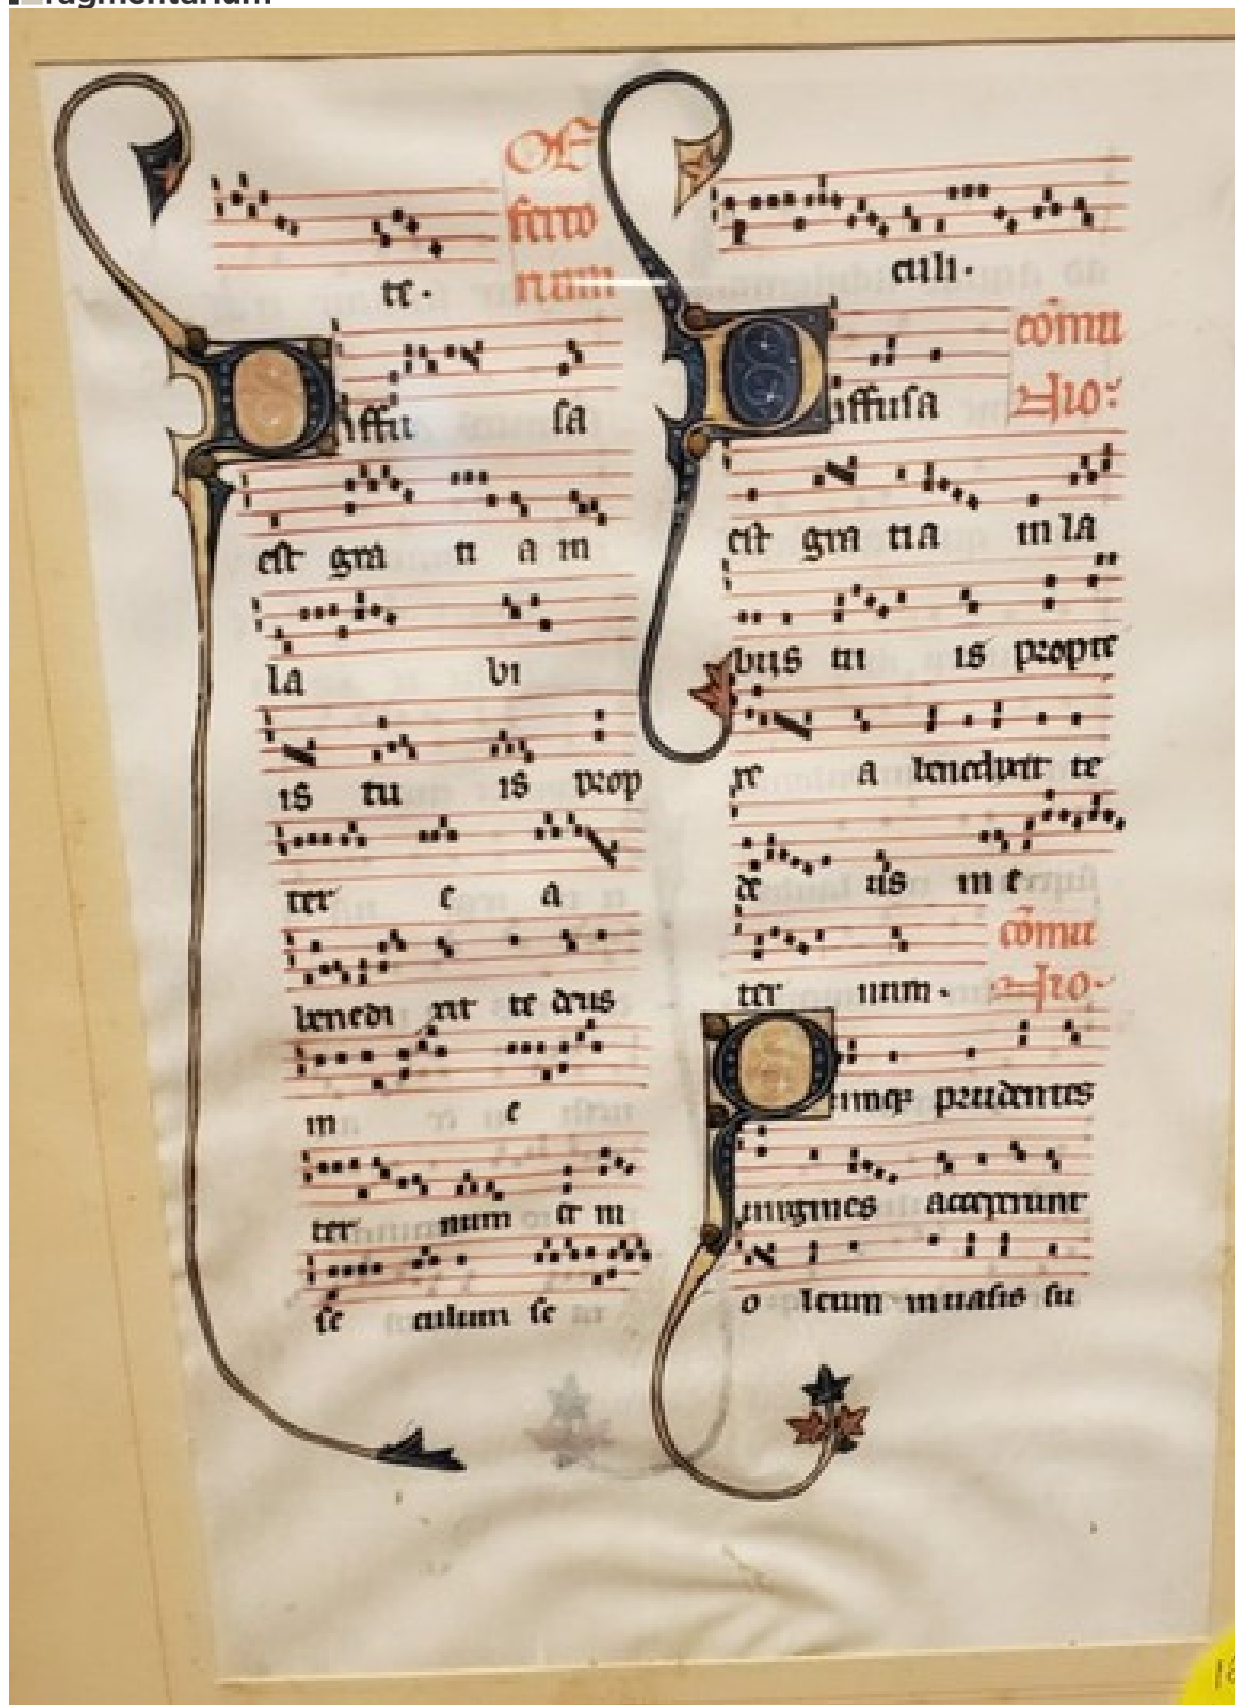 Fragmentarium
te.
Offerto
rium
Diffu sa
est gra ti a in
la bi
is tu is prop
ter e a
benedi xit te deus
in e
ter num et in
se culum se
culi.
Diffusa
cōmu
nio.
est gra tia in la
biis tu is propte
re a benedixit te
de us in e
ter num.
cōmu
nio.
Quinqꝫ prudentes
uirgines acceperunt
o leum in uasis su